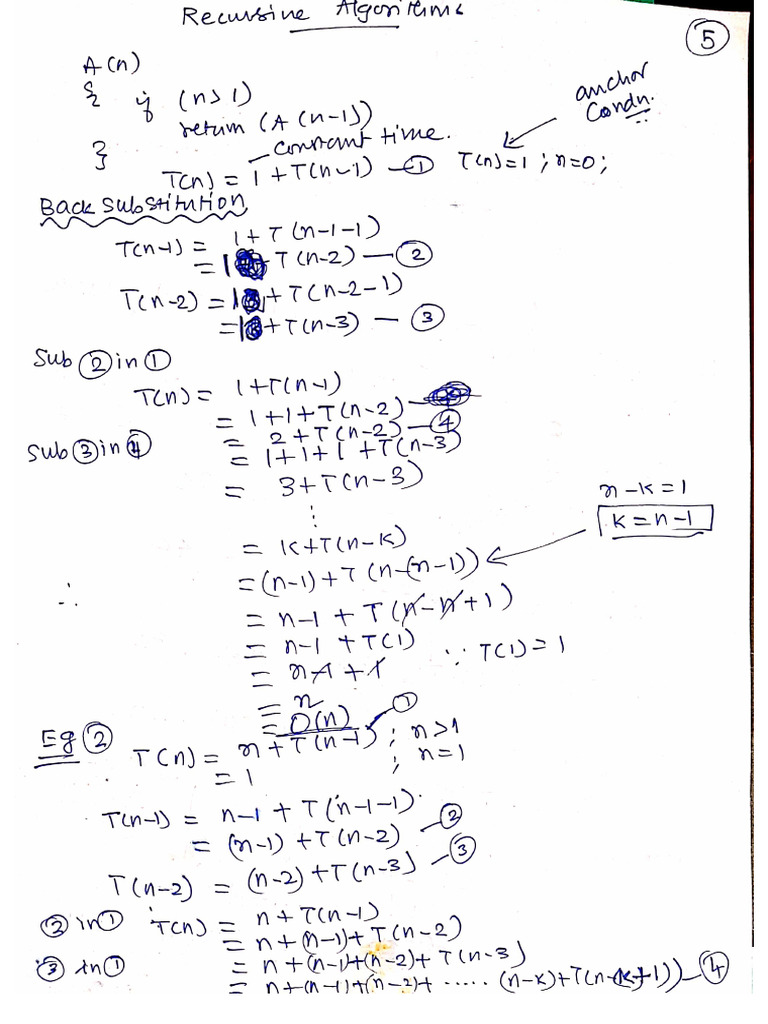 Recursive Algorithms
5
A(n)
{ if (n>1)
return (A(n-1))
}
constant time.
anchor
Condn.
T(n) = 1 + T(n-1) — ① T(n)=1 ; n=0;
Back Substitution
T(n-1) = 1 + T(n-1-1)
= 1 + T(n-2) — ②
T(n-2) = 1 + T(n-2-1)
= 1 + T(n-3) — ③
Sub ② in ①
T(n) = 1+T(n-1)
= 1+1+T(n-2)
= 2+T(n-2) — ④
Sub ③ in ④
= 1+1+1+T(n-3)
= 3+T(n-3)
⋮
n-k=1
k=n-1
= k+T(n-k)
= (n-1)+T(n-(n-1))
∴
= n-1 + T(n-n+1)
= n-1 + T(1)
∵ T(1)=1
= n-1 + 1
= n
= O(n)
Eg ② T(n) = n+T(n-1) ; n>1 ①
= 1 ; n=1
T(n-1) = n-1 + T(n-1-1)
= (n-1) + T(n-2) — ②
T(n-2) = (n-2)+T(n-3) — ③
② in ① T(n) = n+T(n-1)
= n+(n-1)+T(n-2)
③ in ① = n+(n-1)+(n-2)+T(n-3)
= n+(n-1)+(n-2)+ ..... (n-k)+T(n-(k+1)) — ④